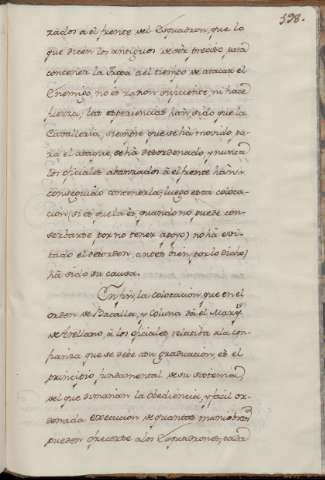 198.
zados a el frente del Esquadron, que lo
que dicen los antiguos de ser preciso para
contener la tropa a el tiempo de atacar el
Enemigo, no es razon suficiente ni hace
fuerza; las esperiencias han sido que la
Cavalleria, siempre que se há movido pa-
ra el ataque, se há desordenado, y nunca
los oficiales abanzados á el frente han
conseguido contenerla; luego esta coloca-
cion, si es que la es, quando no puede con-
servarse por no tener apoyo, no há evi-
tado el desorden, antes bien, por lo dicho,
há sido su causa.
En fin, la colocacion, que en el
orden de Batalla, y Coluna dá el Marqs.
de Arellano, á los oficiales, relativa a la con-
fianza que se debe a su graduacion, es el
principio fundamental de su sistema,
del que dimanan la obediencia, y facil or-
denada execucion de quantas maniobras
pueden ofrecerse a los Esquadrones, cada